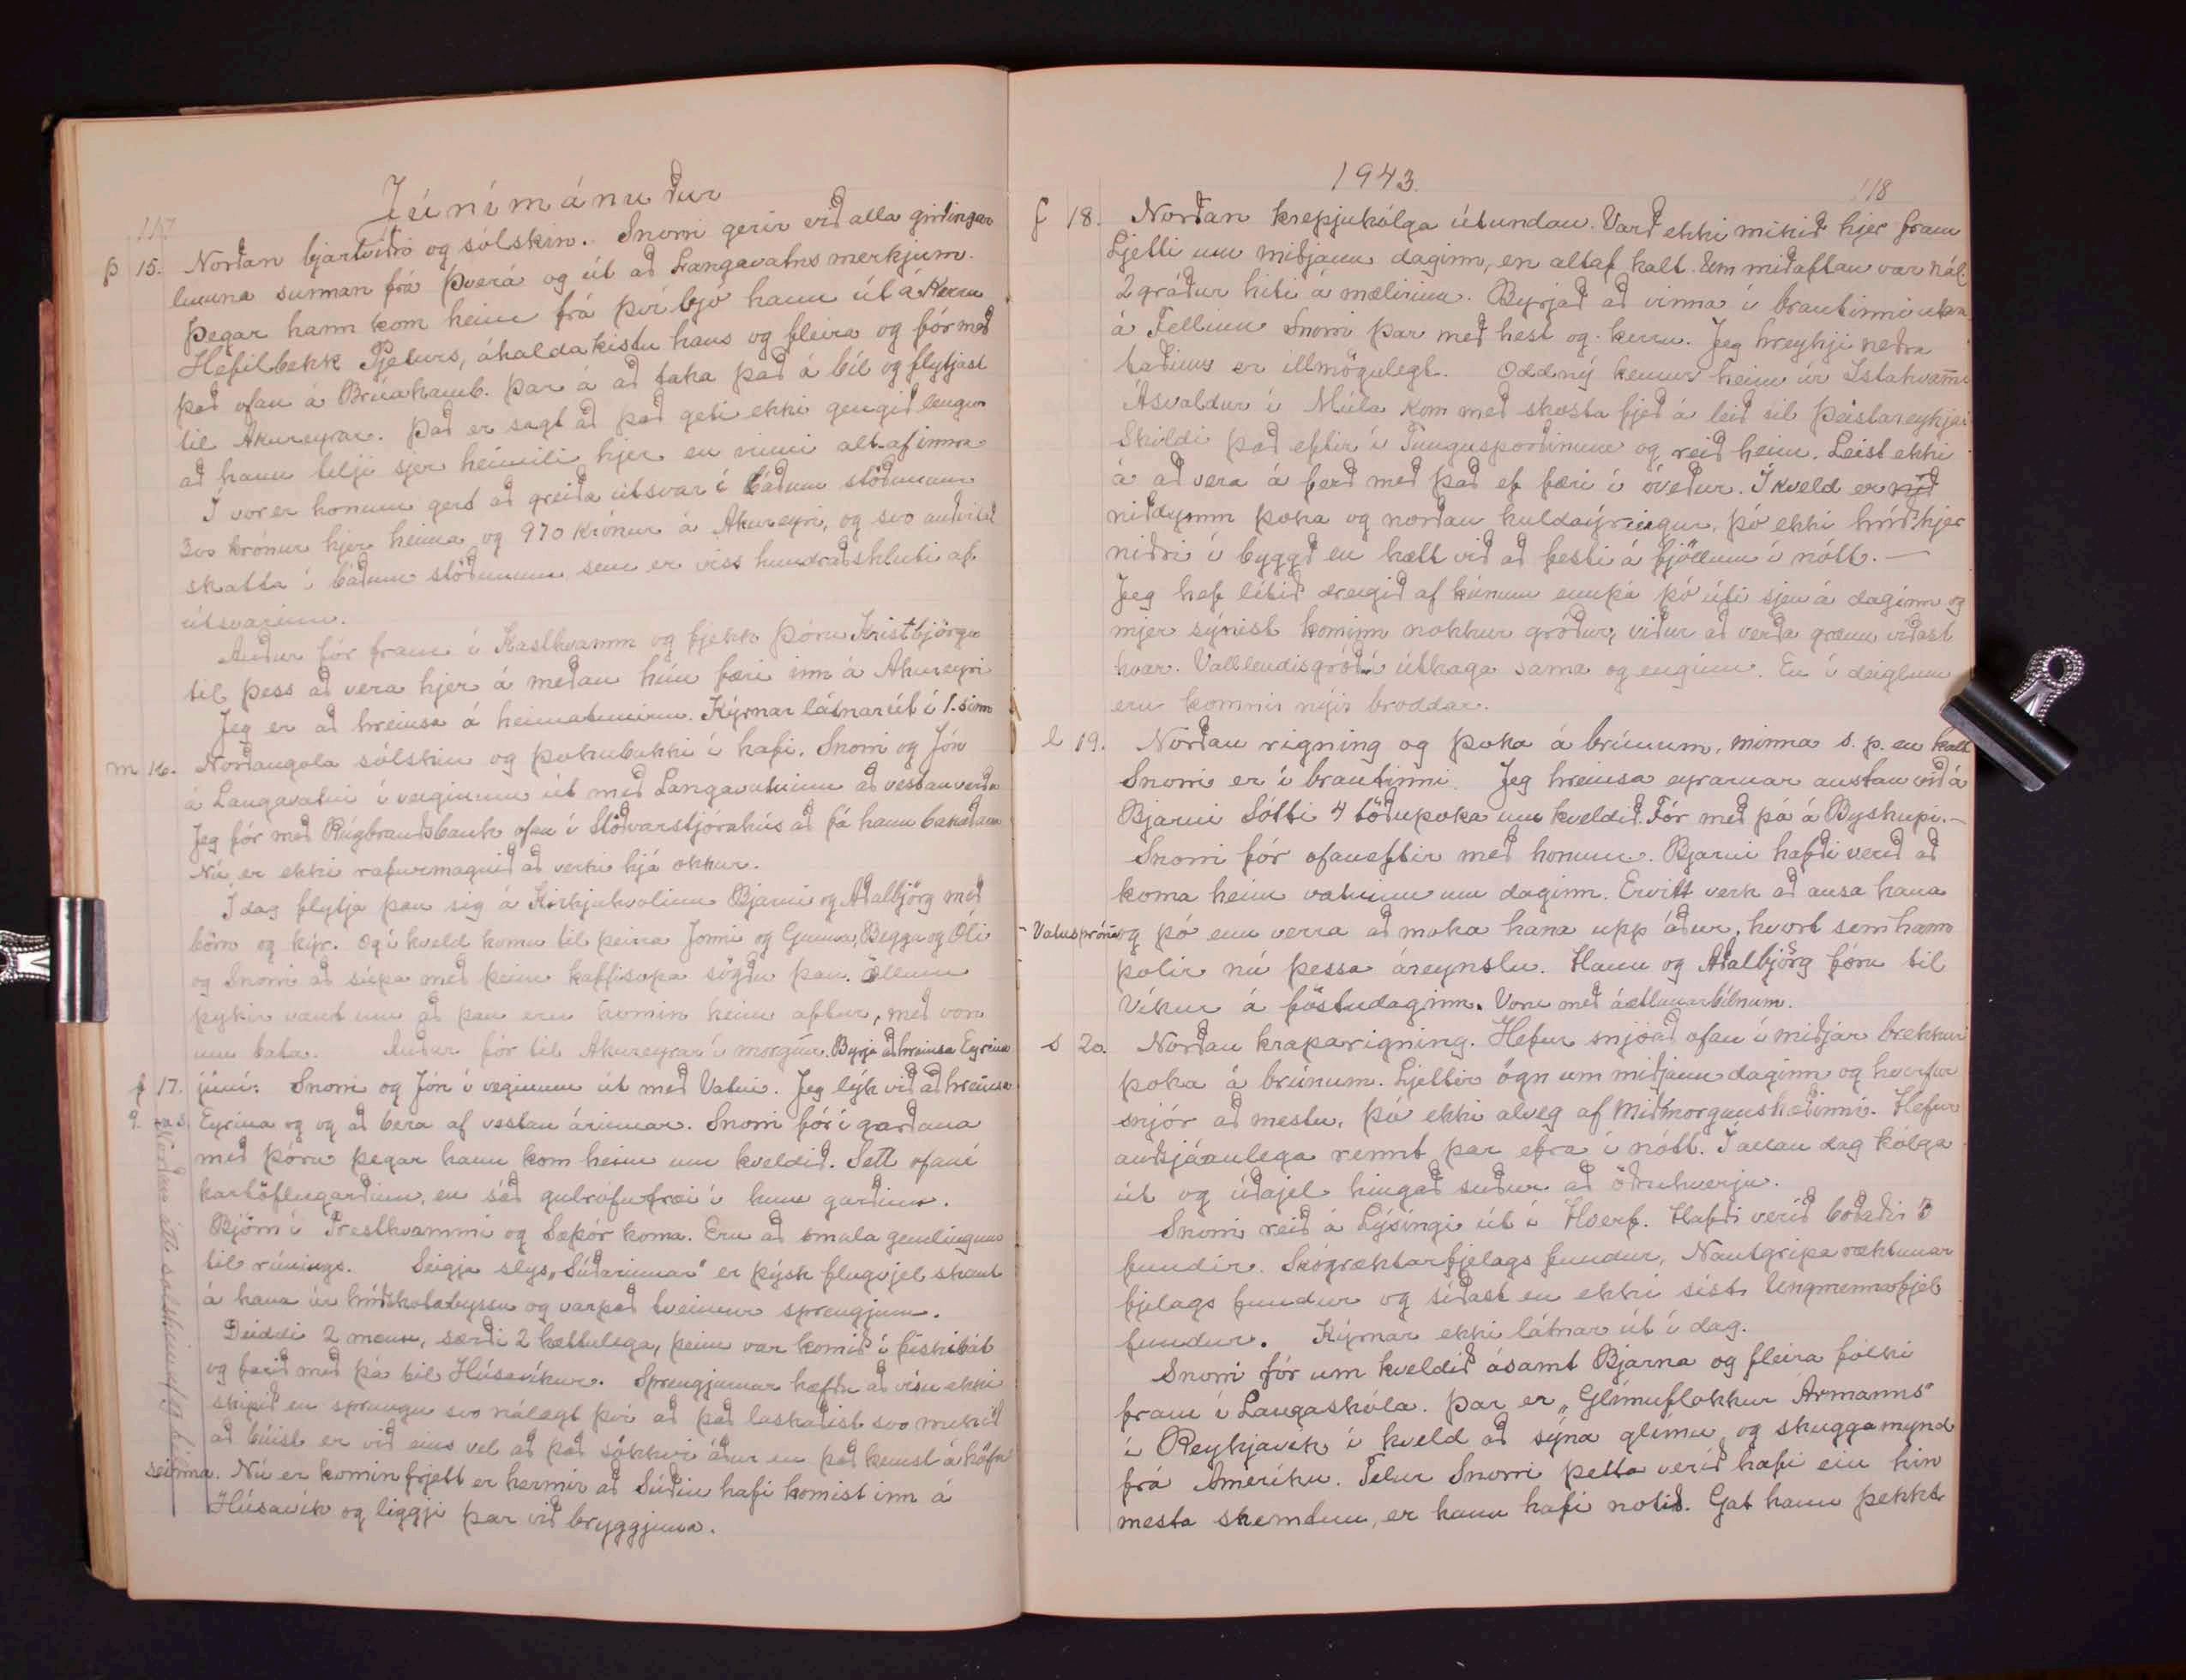 Júnímánuður
117
þ 15. Norðan bjartviðri og sólskin. Snorri gerir við alla girðingar
lumma sunnan frá Þverá og út að Langavatns merkjum.
Þegar hann kom heim frá því bjó hann út á Kerru
Hefilbekk Pjeturs, áhaldakistu hans og fleira og fór með
það ofan á Brúahamb. Þar á að taka það á bíl og flytjast
til Akureyrar. Það er sagt að það geti ekki gengið lengur
að hann telji sjer heimili hjer en vinni alt af innra
Í vor er honum gert að greiða útsvar í báðum stöðunum
300 krónur hjer heima og 970 krónur á Akureyri, og svo auðvitað
skatta í báðum stöðunum, sem er viss hundraðshluti af
útsvarinu.
Auður fór fram í Kasthvamm og fjekk Þóru Kristbjörgu
til þess að vera hjer á meðan hún færi inn á Akureyri
Jeg er að hreinsa á heimatuninu. Kýrnar látnar út í 1. sinn
m 16. Norðangola sólskin og þokubakki í hafi. Snorri og Jón
á Langavatni í veginum út með Langavatninu að vestanverðu
Jeg fór með Rúgbrauðsbauk ofan í Stöðvarstjórahús að fá hann bakaðann
Nú er ekki rafurmagnið að verki hjá okkur.
Í dag flytja þau sig á Kirkjuhvolinn Bjarni og Aðalbjörg með
börn og kýr. Og í kveld komu til þeirra Jonni og Gunna, Begga og Óli
og Snorri að súpa með þeim kaffisopa sögðu þau. Öllum
þykir vænt um að þau eru komin heim aftur, með von
um bata. Auður fór til Akureyrar í morgun. Byrja að hreinsa Eyrina
f 17. júní: Snorri og Jón í veginum út með Vatni. Jeg lýk við að hreinsa
Eyrina og og að bera af vestan árinnar. Snorri fór í garðana
með Þóru þegar hann kom heim um kveldið. Sett ofaní
kartöflugarðinn, en sáð gulrófufræi í hinn garðinn.
Björn í Presthvammi og Sæþór koma. Eru að smala gemlingum
til rúnings. Seigja slys „Súðarinnar" er þýsk flugvjel skaut
á hana úr hríðskotabyssu og varpað tveimur sprengjum.
Deiddi 2 menn, særði 2 hættulega, þeim var komið í fiskibát
og farið með þá til Húsavíkur. Sprengjurnar hæfðu að vísu ekki
skipið en sprungu svo nálægt því að það laskaðist svo mikið
að búist er við eins vel að það sökkvi áður en það kemst á höfn
seinna. Nú er komin frjett er hermir að Súðin hafi komist inn á
Húsavík og liggji þar við bryggjuna.
1943.
118
f 18. Norðan krepjukólga útundan. Varð ekki mikið hjer fram
Ljetti um miðjann daginn, en altaf kalt. Um miðaftan var nál.
2 gráður hiti á mælirinn. Byrjað að vinna í brautinni utan
á Fellinu Snorri þar með hest og kerru. Jeg hreykji neðra
taðinu er illmögulegt. Oddný kemur heim úr Ístahvammi
Ásvaldur í Múla kom með skosta fjeð á leið til Þeistareykja
Skildi það eftir í Tungusporðinum og reið heim. Leist ekki
á að vera á ferð með það ef færi í óveður. Í kveld er
niðdymm þoka og norðan kuldaýringur, þó ekki hríð hjer
niðri í byggð en hætt við að festi á fjöllum í nótt. —
Jeg hef lítið dregið af kúnum ennþá þó úti sjeu á daginn og
mjer sýnist kominn nokkur gróður, viður að verða grænn víðast
hvar. Vallendisgróður í úthaga sama og enginn. En í deiglum
eru komnir nýir broddar.
l 19. Norðan rigning og þoka á brúnum, minna s. p. en kalt
Snorri er í brautinni. Jeg hreinsa eyrarnar austan við á
Bjarni Sótti 4 töðupoka um kveldið. Fór með þá á Byskupi. —
Snorri fór ofaneftir með honum. Bjarni hafði verið að
koma heim vatninu um daginn. Ervitt verk að ausa hana
- Vatnsþróna og þó enn verra að moka hana upp áður, hvort sem hann
þolir nú þessa áreynslu. Hann og Aðalbjörg fóru til
Víkur á föstudaginn. Voru með áætlunarbílnum.
s 20. Norðan kraparigning. Hefur snjóað ofan í miðjar brekkur
þoka á brúnum. Ljettir ögn um miðjann daginn og hverfur
snjór að mestu, þó ekki alveg af Miðmorgunshæðinni. Hefur
auðsjáanlega rennt þar efra í nótt. Í allan dag kólga
út og úðajel hingað suður að öðruhverju.
Snorri reið á Lýsingi út í Hverf. Hafði verið boðaðir 3
fundir. Skógræktarfjelags fundur, Nautgriparæktunar
fjelags fundur og síðast en ekki síst Ungmennafjel.
fundur. Kýrnar ekki látnar út í dag.
Snorri fór um kveldið ásamt Bjarna og fleira fólki
fram í Laugaskóla. Þar er „Glímuflokkur Ármanns"
í Reykjavík í kveld að sýna glímu, og skuggamynd
frá Ameríku. Telur Snorri þetta verið hafi ein hin
mesta skemtun, er hann hafi notið. Gat hann þekkt